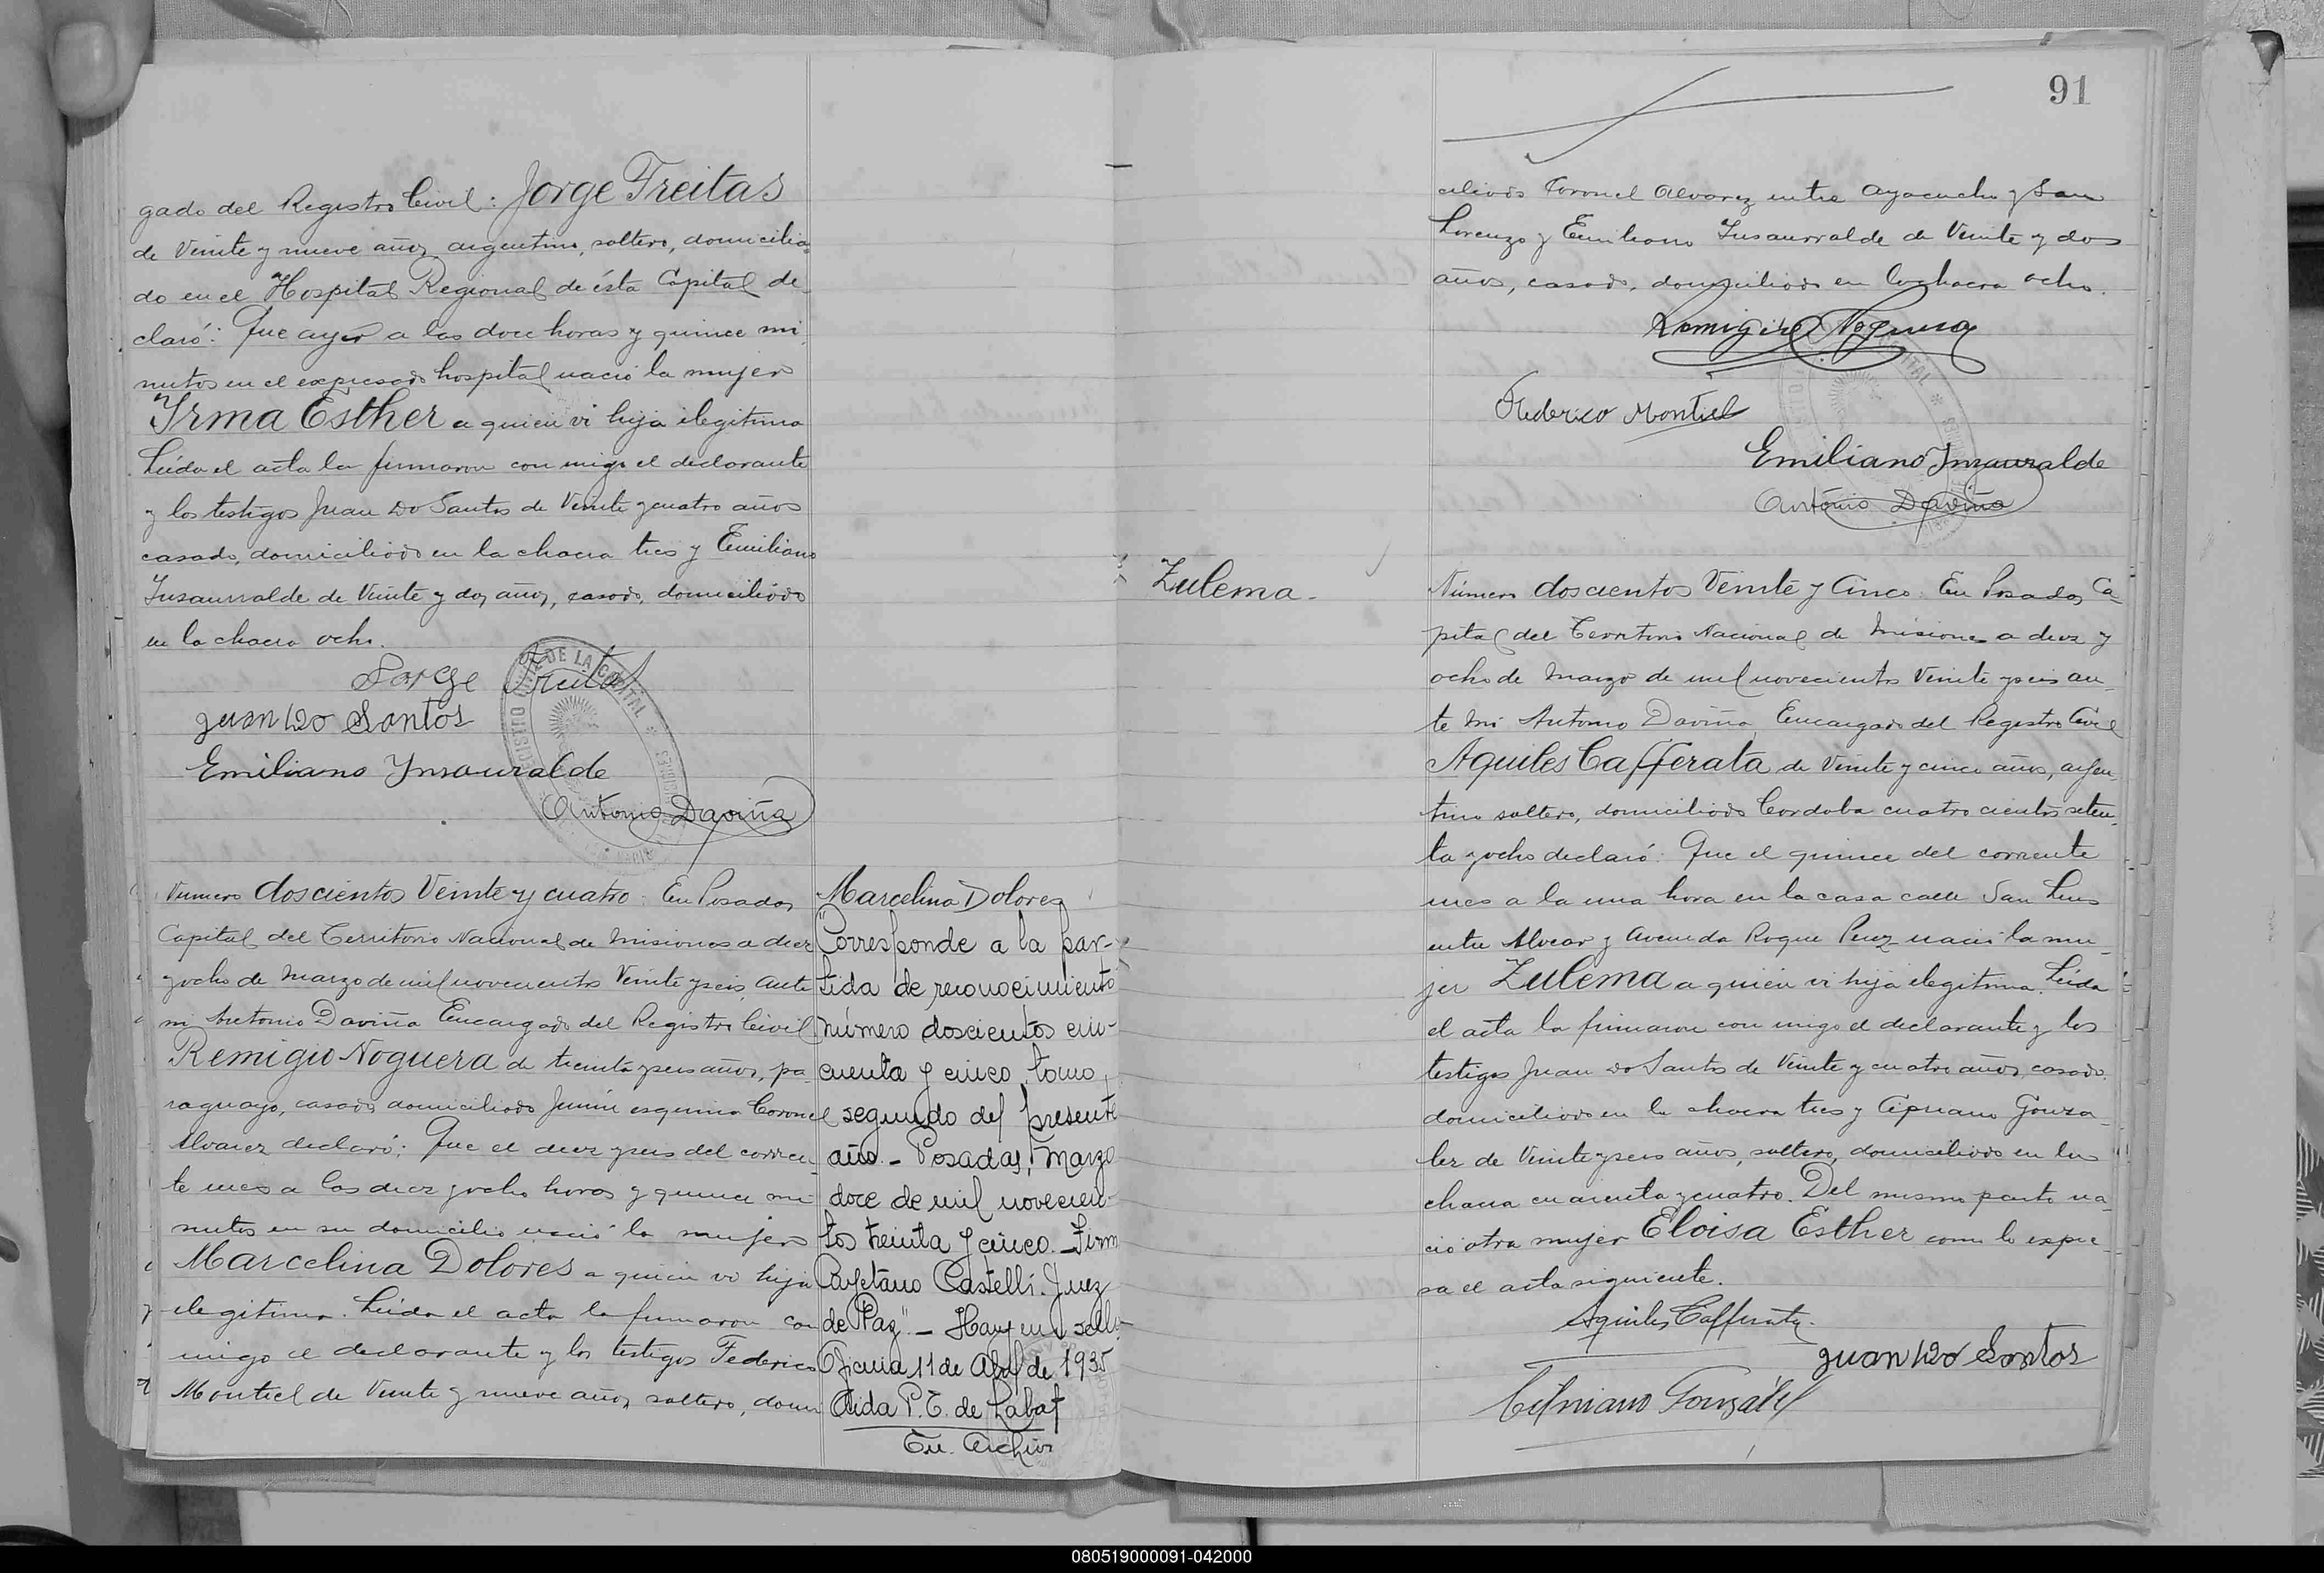 gado del Registro Civil: Jorge Freitas
de Veinte y nueve años, argentino, soltero, domicilia-
do en el Hospital Regional de ésta Capital de-
claró: Que ayer a las doce horas y quince mi-
nutos en el expresado hospital nació la mujer
Yrma Esther a quien vi hija ilegitima
Leida el acta la firmaron con migo el declarante
y los testigos Juan Do Santos de Veinte y cuatro años
casado, domiciliado en la chacra tres y Emiliano
Insaurralde de Veinte y dos años, casado, domiciliado
en la chacra ocho.
Jorge Freitas
Juan Do Santos
Emiliano Ynsaurralde
Antonio Daviña
Número doscientos Veinte y cuatro: En Posadas
Capital del Territorio Nacional de Misiones a diez
y ocho de Marzo de mil novecientos Veinte y seis, ante
mi Antonio Daviña Encargado del Registro Civil
Remigio Noguera de treinta y seis años, pa-
raguayo, casado domiciliado Junin esquina Coronel
Alvarez declaró: Que el diez y seis del corrien-
te mes a las diez y ocho horas y quince mi-
nutos en su domicilio nació la mujer
Marcelina Dolores a quien vi hija
ilegitima. Leida el acta la firmaron con
migo el declarante y los testigos Federico
Montiel de Veinte y nueve años, soltero, domi
Marcelina Dolores
"Corresponde a la par-
tida de reconocimiento
número doscientos cin-
cuenta y cinco, tomo
segundo del presente
año. - Posadas, Marzo
doce de mil novecien-
tos treinta y cinco. - Firm
Cayetano Castelli. Juez
de Paz". - Hay un sello.
Oficina 11 de Abril de 1935
Aida P. T. de Labat
En. Archivo
91
ciliado Coronel Alvarez entre Ayacucho y San
Lorenzo y Emiliano Insaurralde de Veinte y dos
años, casado, domiciliado en la chacra ocho.
Remigio Noguera
Federico Montiel
Emiliano Insaurralde
Antonio Daviña
Zulema.
Número doscientos Veinte y Cinco: En Posadas Ca-
pital del Territorio Nacional de Misiones a diez y
ocho de Marzo de mil novecientos Veinte y seis an-
te mi Antonio Daviña Encargado del Registro Civil
Aquiles Cafferata de Veinte y cinco años, argen-
tino soltero, domiciliado Cordoba cuatro cientos seten-
ta y ocho declaró: Que el quince del corriente
mes a la una hora en la casa calle San Luis
entre Alvear y Avenida Roque Perez nació la mu-
jer Zulema a quien vi hija ilegitima. Leida
el acta la firmaron con migo el declarante y los
testigos Juan Do Santos de Veinte y cuatro años, casado,
domiciliado en la chacra tres y Cipriano Gonza-
lez de Veinte y seis años, soltero, domiciliado en la
chacra cuarenta y cuatro. Del mismo parto na-
ció otra mujer Eloisa Esther como lo expre-
sa el acta siguiente.
Aquiles Cafferata
Juan Do Santos
Cipriano González
080519000091-042000